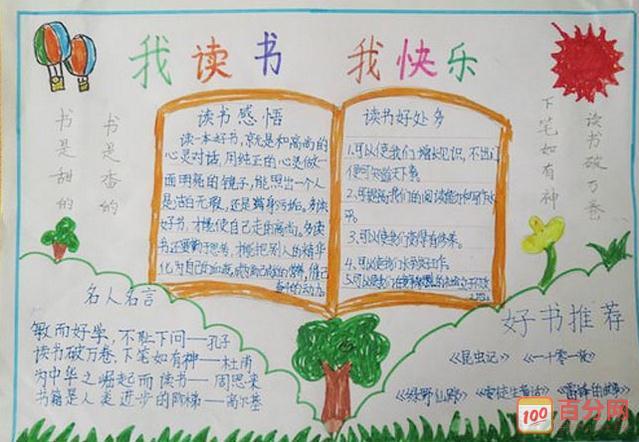 我读书 我快乐
书是香的
书是甜的
读书破万卷
下笔如有神
读书感悟
读一本好书,就是和高尚的
心灵对话,用纯正的心灵做一
面明亮的镜子,能照出一个人
是洁白无瑕,还是满身污垢。多读
好书,才能使自己走向高尚。多读
书还要勤于思考,才能把别人的精华
化为自己的血液,成为自己成的营养,
奋斗的动力。
读书好处多
1.可以使我们增长见识,不出门
便可知道天下事。
2.可提高我们的阅读能力和写作水
平。
3.可以使我们变得有修养。
4.可以使我们
5.可以使我们
名人名言
敏而好学,不耻下问——孔子
读书破万卷,下笔如有神——杜甫
为中华之崛起而读书——周恩来
书籍是人类进步的阶梯——高尔基
好书推荐
《昆虫记》《一千零一夜》
《绿野仙踪》《安徒生童话》《雷锋的故事》
100 百分网